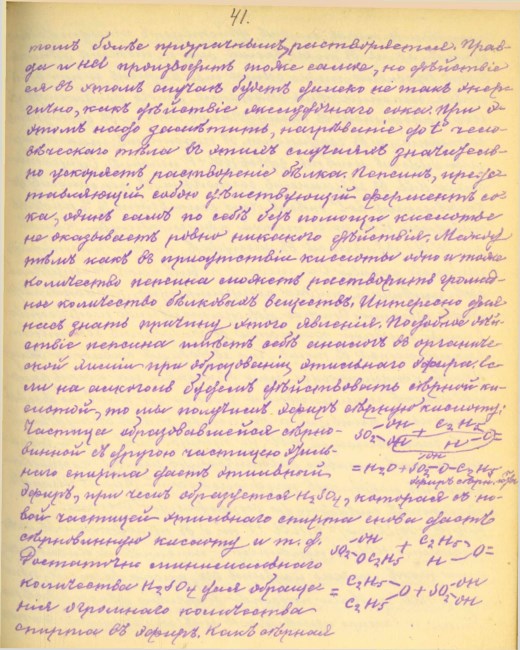 41.
томъ болѣе прозрачнымъ, растворяется. Прав-
да и HCl производитъ тоже самое, но дѣйствіе
ея въ этомъ случаѣ будетъ далеко не такъ энер-
гично, какъ дѣйствіе желудочнаго сока. При
этомъ надо замѣтить, нагрѣваніе до t° чело-
вѣческаго тѣла въ этихъ случаяхъ значитель-
но ускоряетъ раствореніе бѣлка. Пепсинъ, предс-
тавляющій собою дѣйствующій ферментъ со-
ка, одинъ самъ по себѣ безъ помощи кислоты
не оказываетъ ровно никакого дѣйствія. Между
тѣмъ какъ въ присутствіи кислоты одно и тоже
количество пепсина сможетъ растворить громад-
ное количество бѣлковыхъ веществъ. Интересно для
насъ знать причину этого явленія. Подобное дѣй-
ствіе пепсина имѣетъ себѣ аналогъ въ органиче-
ской химіи при образованіи этильнаго эфира. Ес-
ли на алкоголь будемъ дѣйствовать сѣрной ки-
слотой, то мы получимъ эфиръ сѣрную кислоту:
Частица образовавшейся сѣрно-
винной съ другою частицею этиль-
наго спирта даетъ этильный
эфиръ, при чемъ образуется H₂SO₄, которая съ но-
вой частицей этильнаго спирта снова даетъ
сѣрновинную кислоту и т. д.
Достаточно минимальнаго
количества H₂SO₄ для обраще-
нія огромнаго количества
спирта въ эфиръ. Какъ сѣрная
SO₂ OH OH + C₂H₅ H O =
= H₂O + SO₂ O-C₂H₅ OH
SO₂ OH OC₂H₅ + C₂H₅ H O =
= C₂H₅ C₂H₅ O + SO₂ OH OH